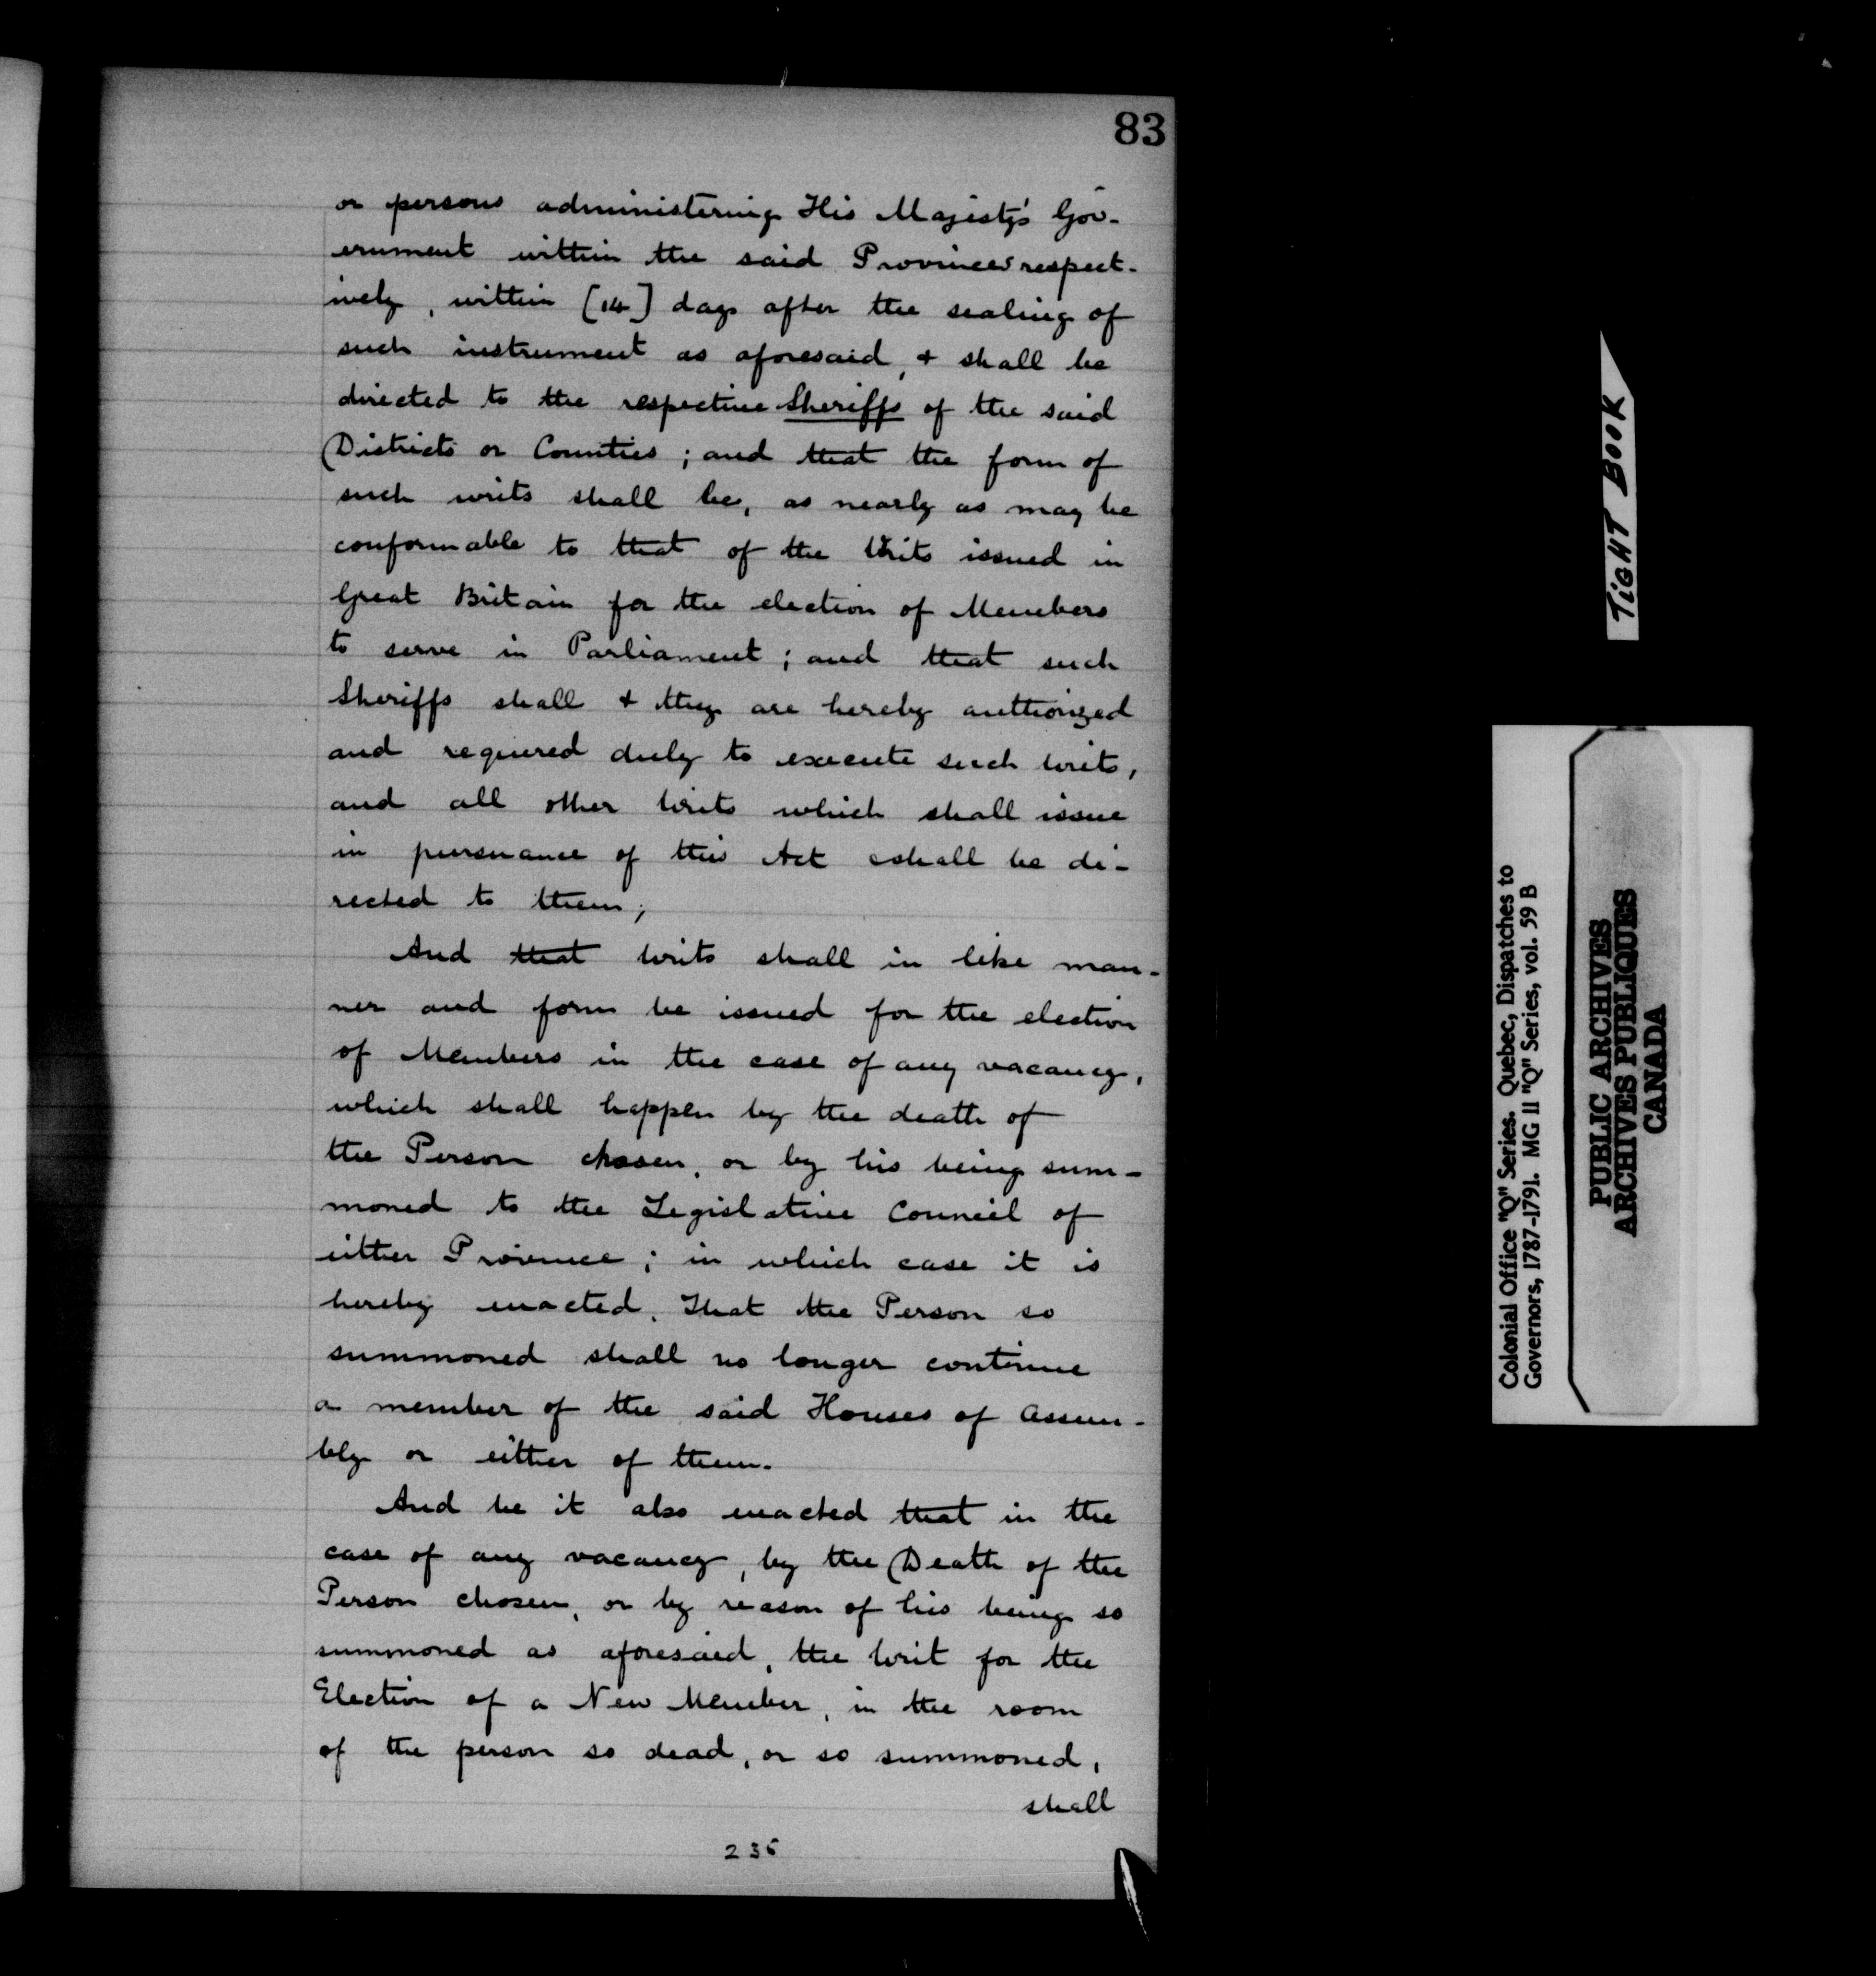 83
or persons administering His Majesty's Gov-
ernment within the said Provinces respect-
ively, within [14] days after the sealing of
such instrument as aforesaid, & shall be
directed to the respective Sheriffs of the said
Districts or Counties; and that the form of
such writs shall be, as nearly as may be
conformable to that of the Writs issued in
Great Britain for the election of Members
to serve in Parliament; and that such
Sheriffs shall & they are hereby authorized
and required duly to execute such Writs,
and all other Writs which shall issue
in pursuance of this Act & shall be di-
rected to them;
And that Writs shall in like man-
ner and form be issued for the election
of Members in the case of any vacancy,
which shall happen by the death of
the Person chosen, or by his being sum-
moned to the Legislative Council of
either Province; in which case it is
hereby enacted, That the Person so
summoned shall no longer continue
a member of the said Houses of Assem-
bly or either of them.
And be it also enacted that in the
case of any vacancy, by the Death of the
Person chosen, or by reason of his being so
summoned as aforesaid, the Writ for the
Election of a New Member, in the room
of the person so dead, or so summoned,
shall
235
TIGHT BOOK
Colonial Office "Q" Series. Quebec, Dispatches to
Governors, 1787-1791. MG 11 "Q" Series, vol. 59 B
PUBLIC ARCHIVES
ARCHIVES PUBLIQUES
CANADA